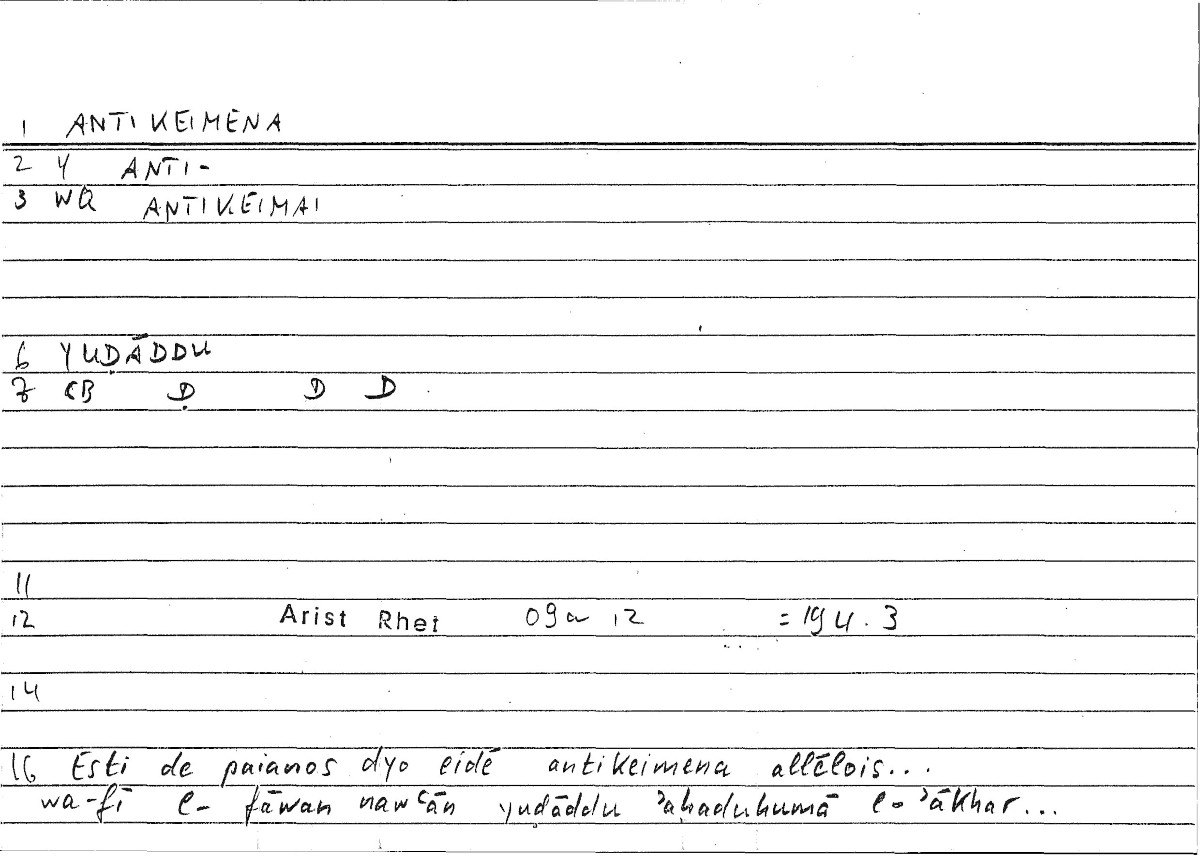 1 ANTIKEIMENA
2 Y ANTI-
3 WQ ANTIKEIMAI
6 YUḌĀDDU
7 CB Ḍ D D
11
12 Arist Rhet 09a 12 = 194.3
14
16 Esti de paianos dyo eidē antikeimena allēlois...
wa-fī l- fāwan nawʿān yuḍāddu ʾaḥaduhumā l-ʾākhar...